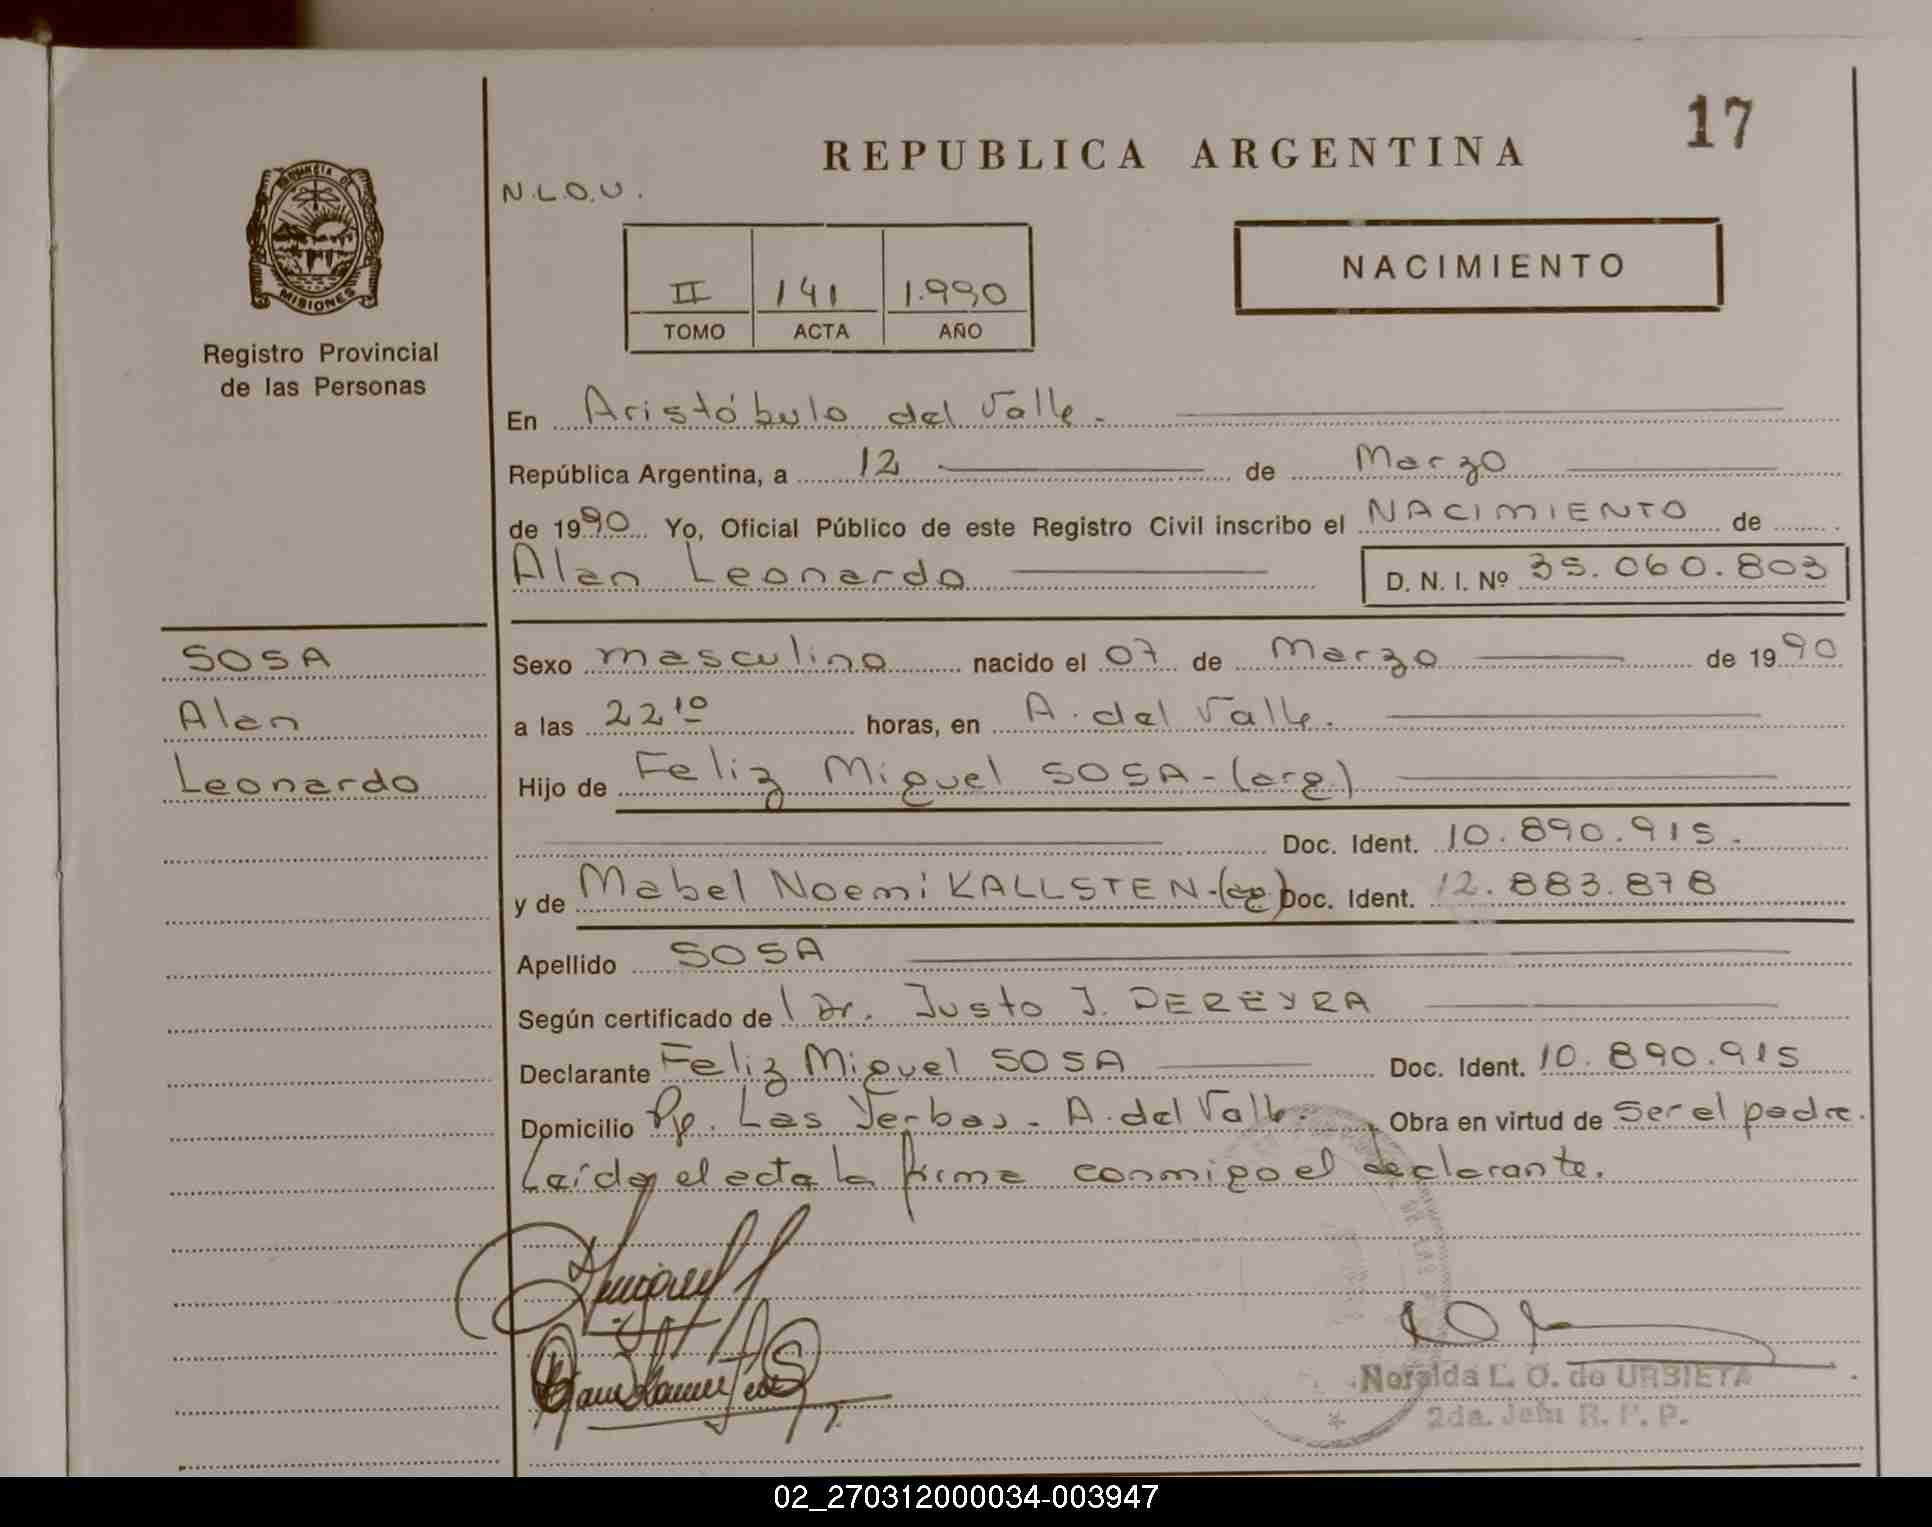 17
REPUBLICA ARGENTINA
N.L.O.U.
PROVINCIA DE
MISIONES
NACIMIENTO
II 141 1.990
TOMO ACTA AÑO
Registro Provincial
de las Personas
En Aristóbulo del Valle.
República Argentina, a 12 de Marzo
de 1990 Yo, Oficial Público de este Registro Civil inscribo el NACIMIENTO de
Alan Leonardo D. N. I. Nº 35.060.803
SOSA
Alan
Leonardo
Sexo masculino nacido el 07 de Marzo de 1990
a las 22¹⁰ horas, en A. del Valle.
Hijo de Feliz Miguel SOSA-(arg)
Doc. Ident. 10.890.915.
y de Mabel Noemi KALLSTEN-(ag) Doc. Ident. 12.883.878
Apellido SOSA
Según certificado de Dr. Justo J. PEREYRA
Declarante Feliz Miguel SOSA Doc. Ident. 10.890.915
Domicilio Pje. Las Yerbas - A. del Valle. Obra en virtud de ser el padre.
Leída el acta la firma conmigo el declarante.
L. O. de URBIETA
2da. Jefa R. P. P.
02_270312000034-003947